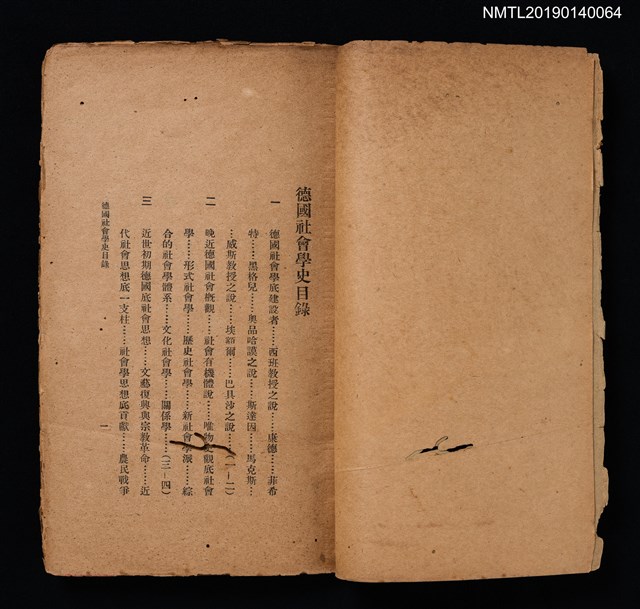 NMTL20190140064
德國社會學史目錄
一　德國社會學底建設者……西班教授之說……康德……菲希
特……黑格兒……奧品哈謨之說……斯達因……馬克斯…
…威斯教授之說……埃爾……巴具涉之說……(一—二)
二　晚近德國社會概觀……社會有機體說……唯物史觀底社會
學……形式社會學……歷史社會學……新社會學派……綜
合的社會學體系……文化社會學……關係學……(三—四)
三　近世初期德國底社會思想……文藝復興與宗教革命……近
代社會思想底一支柱……社會學思想底貢獻……農民戰爭
德國社會學史目錄
一